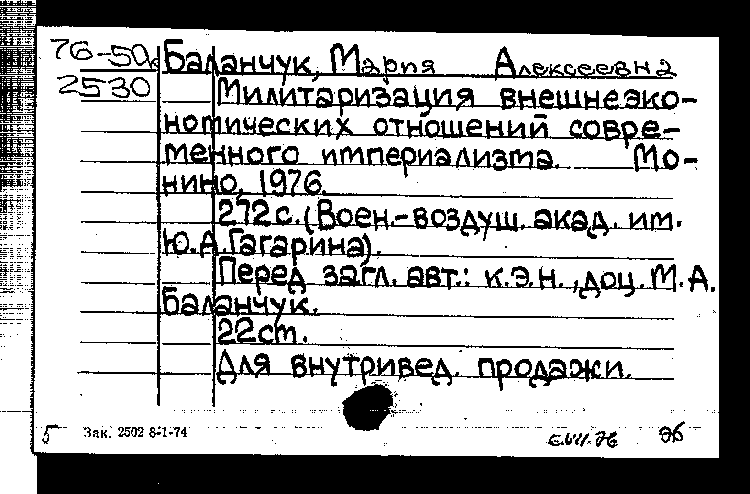 76-50к Баланчук, Мария Алексеевна
2530 Милитаризация внешнеэко-
номических отношений совре-
менного империализма. Мо-
нино, 1976.
272 с. (Воен.-воздуш. акад. им.
Ю.А.Гагарина).
Перед загл. авт.: к.э.н., доц. М.А.
Баланчук.
22 cm.
Для внутривед. продажи.
5 Зак. 2502 8-1-74 96